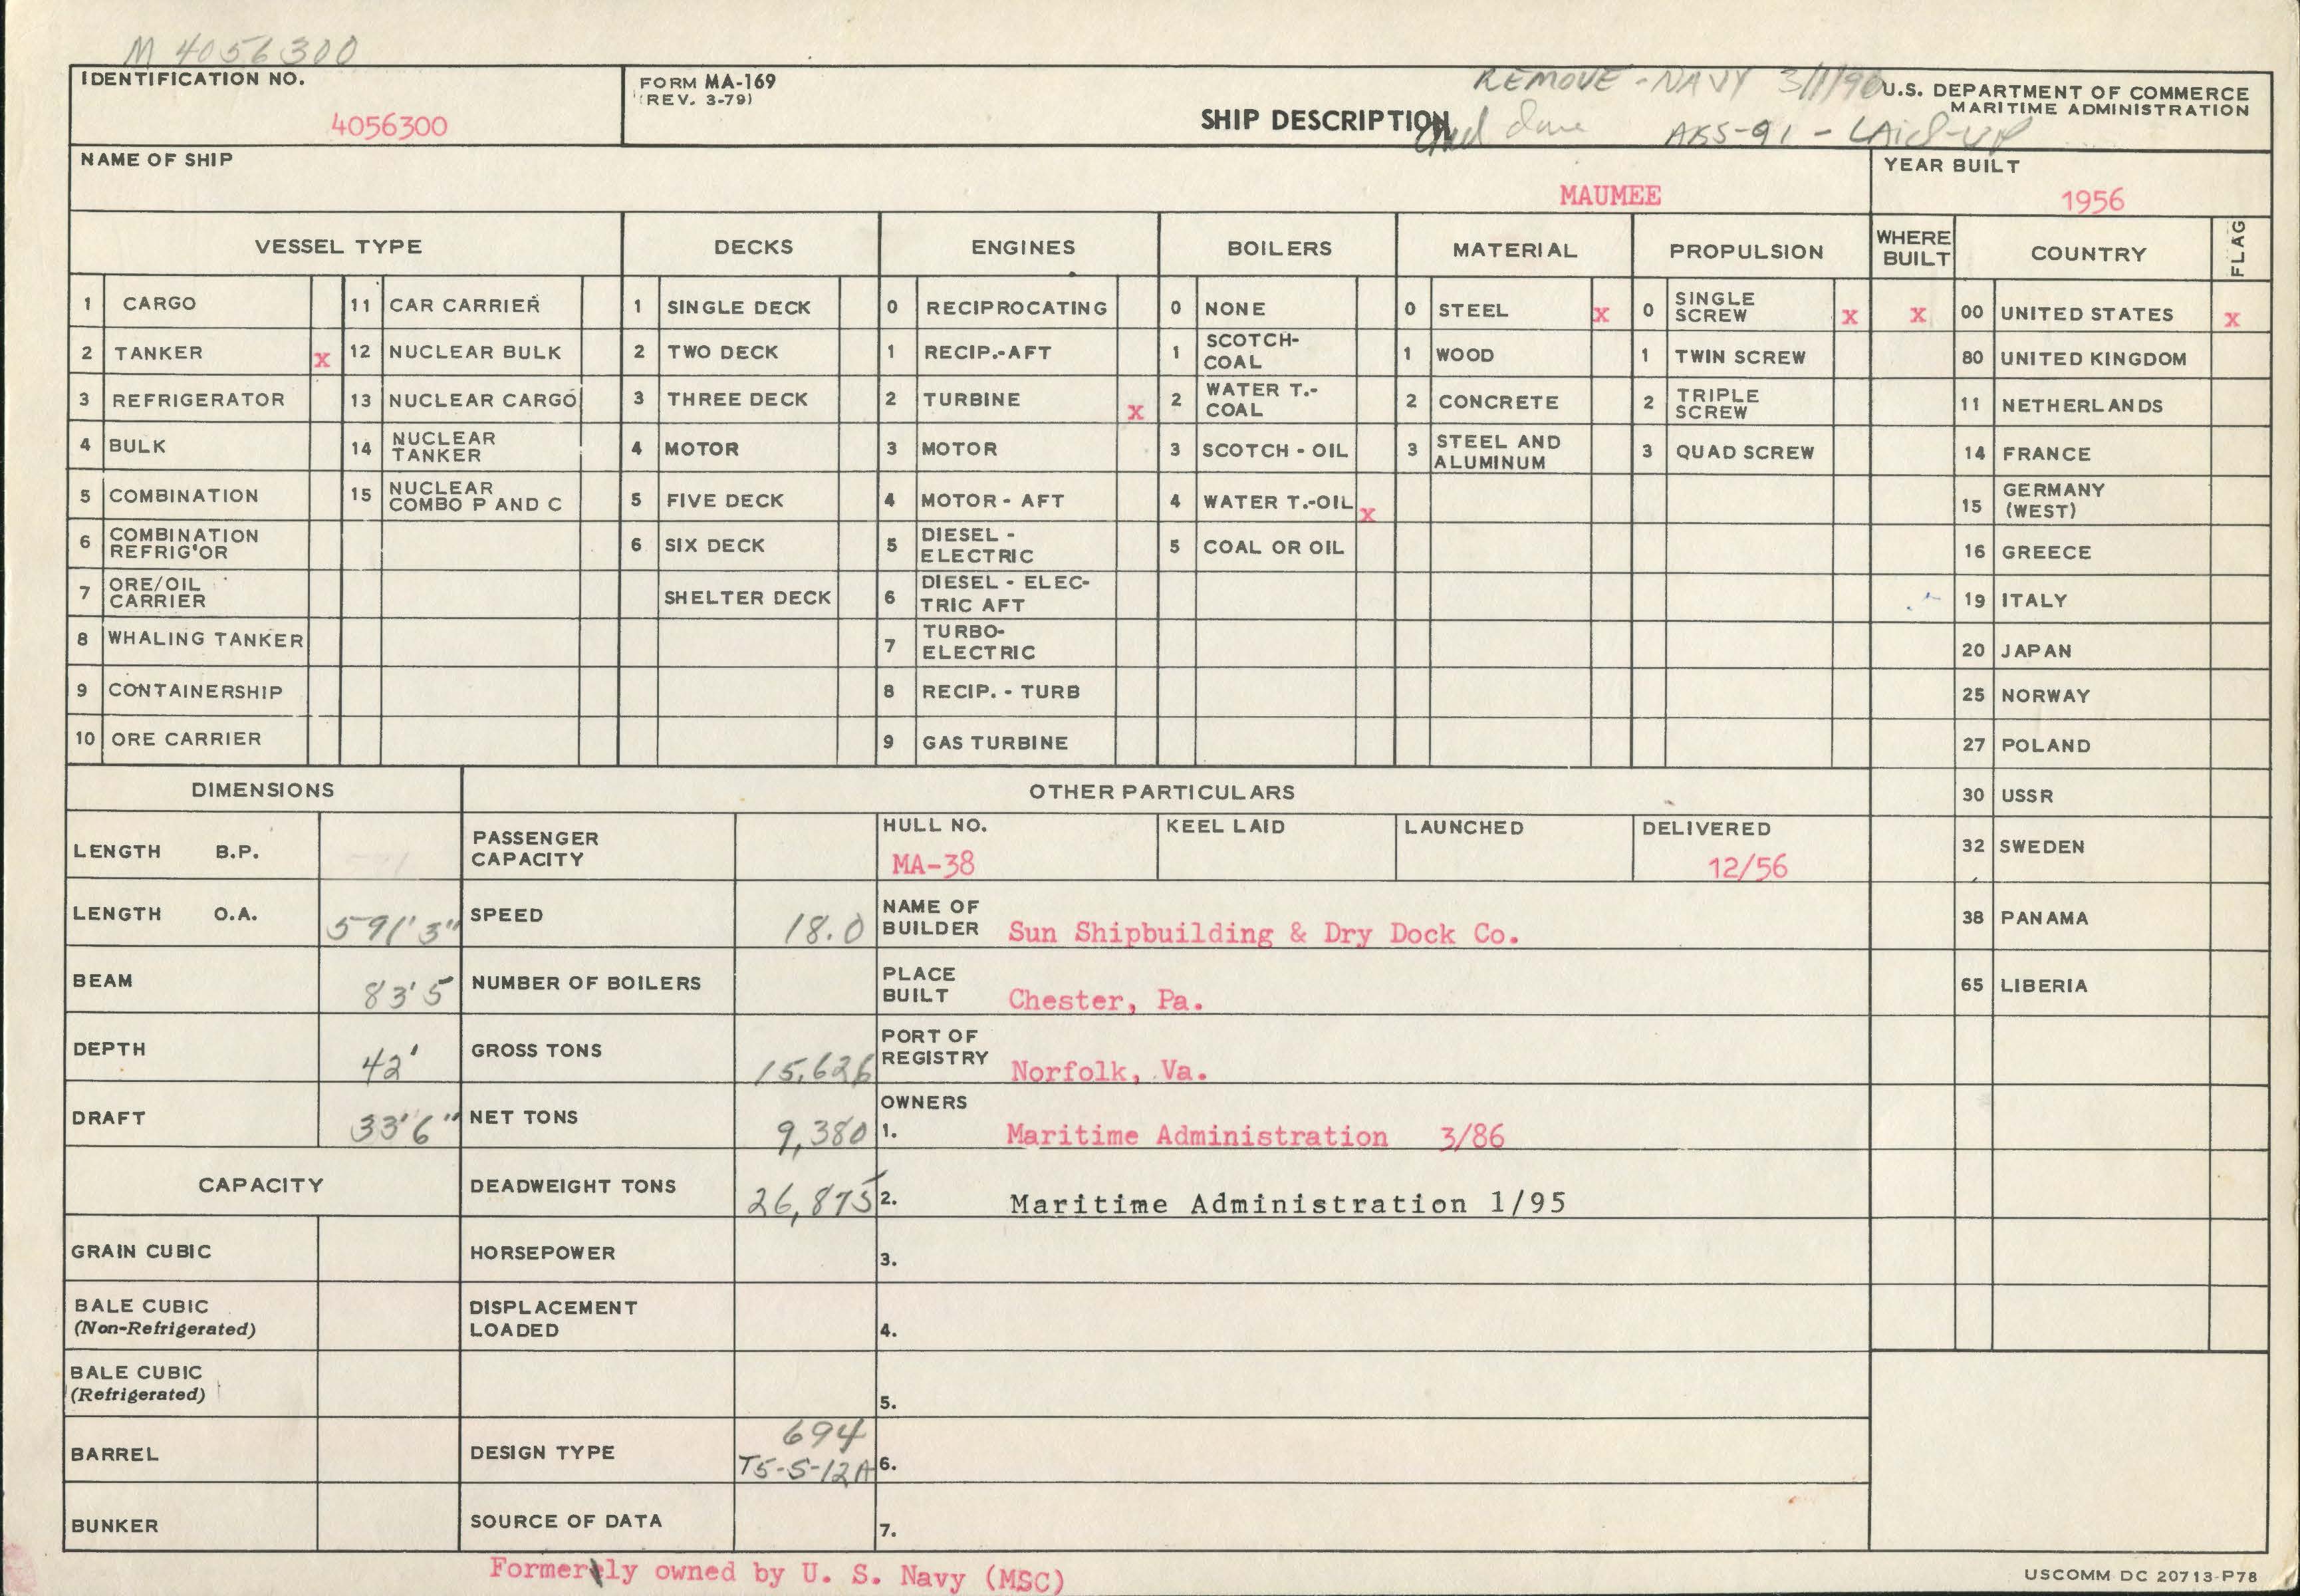 M 4056300
IDENTIFICATION NO.
4056300
FORM MA-169
(REV. 3-79)
SHIP DESCRIPTION
REMOVE - NAVY 3/1/90
done AKS-91 - LAID-UP
U.S. DEPARTMENT OF COMMERCE
MARITIME ADMINISTRATION
NAME OF SHIP
MAUMEE
YEAR BUILT
1956
VESSEL TYPE DECKS ENGINES BOILERS MATERIAL PROPULSION WHERE BUILT COUNTRY FLAG
1 CARGO 11 CAR CARRIER 1 SINGLE DECK 0 RECIPROCATING 0 NONE 0 STEEL x 0 SINGLE SCREW x x 00 UNITED STATES x
2 TANKER x 12 NUCLEAR BULK 2 TWO DECK 1 RECIP.-AFT 1 SCOTCH-COAL 1 WOOD 1 TWIN SCREW 80 UNITED KINGDOM
3 REFRIGERATOR 13 NUCLEAR CARGO 3 THREE DECK 2 TURBINE x 2 WATER T.-COAL 2 CONCRETE 2 TRIPLE SCREW 11 NETHERLANDS
4 BULK 14 NUCLEAR TANKER 4 MOTOR 3 MOTOR 3 SCOTCH - OIL 3 STEEL AND ALUMINUM 3 QUAD SCREW 14 FRANCE
5 COMBINATION 15 NUCLEAR COMBO P AND C 5 FIVE DECK 4 MOTOR - AFT 4 WATER T.-OIL x 15 GERMANY (WEST)
6 COMBINATION REFRIG'OR 6 SIX DECK 5 DIESEL - ELECTRIC 5 COAL OR OIL 16 GREECE
7 ORE/OIL CARRIER SHELTER DECK 6 DIESEL - ELEC-TRIC AFT 19 ITALY
8 WHALING TANKER 7 TURBO-ELECTRIC 20 JAPAN
9 CONTAINERSHIP 8 RECIP. - TURB 25 NORWAY
10 ORE CARRIER 9 GAS TURBINE 27 POLAND
DIMENSIONS OTHER PARTICULARS 30 USSR
LENGTH B.P. PASSENGER CAPACITY HULL NO. MA-38 KEEL LAID LAUNCHED DELIVERED 12/56 32 SWEDEN
LENGTH O.A. 591'3" SPEED 18.0 NAME OF BUILDER Sun Shipbuilding & Dry Dock Co. 38 PANAMA
BEAM 83'5 NUMBER OF BOILERS PLACE BUILT Chester, Pa. 65 LIBERIA
DEPTH 42' GROSS TONS 15,626 PORT OF REGISTRY Norfolk, Va.
DRAFT 33'6" NET TONS 9,380 OWNERS 1. Maritime Administration 3/86
CAPACITY DEADWEIGHT TONS 26,875 2. Maritime Administration 1/95
GRAIN CUBIC HORSEPOWER 3.
BALE CUBIC (Non-Refrigerated) DISPLACEMENT LOADED 4.
BALE CUBIC (Refrigerated) 5.
BARREL DESIGN TYPE 694 T5-S-12A 6.
BUNKER SOURCE OF DATA 7.
Formerly owned by U. S. Navy (MSC)
USCOMM-DC 20713-P78